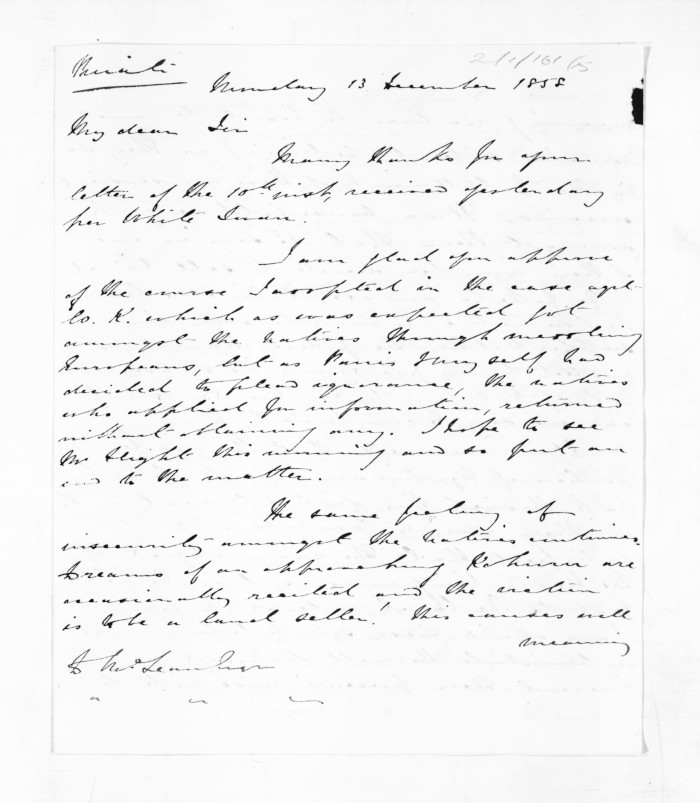 Private
Monday 13 December 1858
My dear Sir
Many thanks for your
letter of the 10th inst, received yesterday
per White Swan.
I am glad you approve
of the course I adopted in the case agst
W. K. which as was expected got
amongst the natives through meddling
Europeans, but as Parris & myself had
decided to plead ignorance, the natives
who applied for information, returned
without obtaining any. I hope to see
Mr Flight this morning and so put an
end to the matter.
The same feeling of
insecurity amongst the natives continues.
Dreams of an approaching Kohuru are
occasionally recited and the victim
is to be a land seller! This causes well
meaning
D McLean Esqr